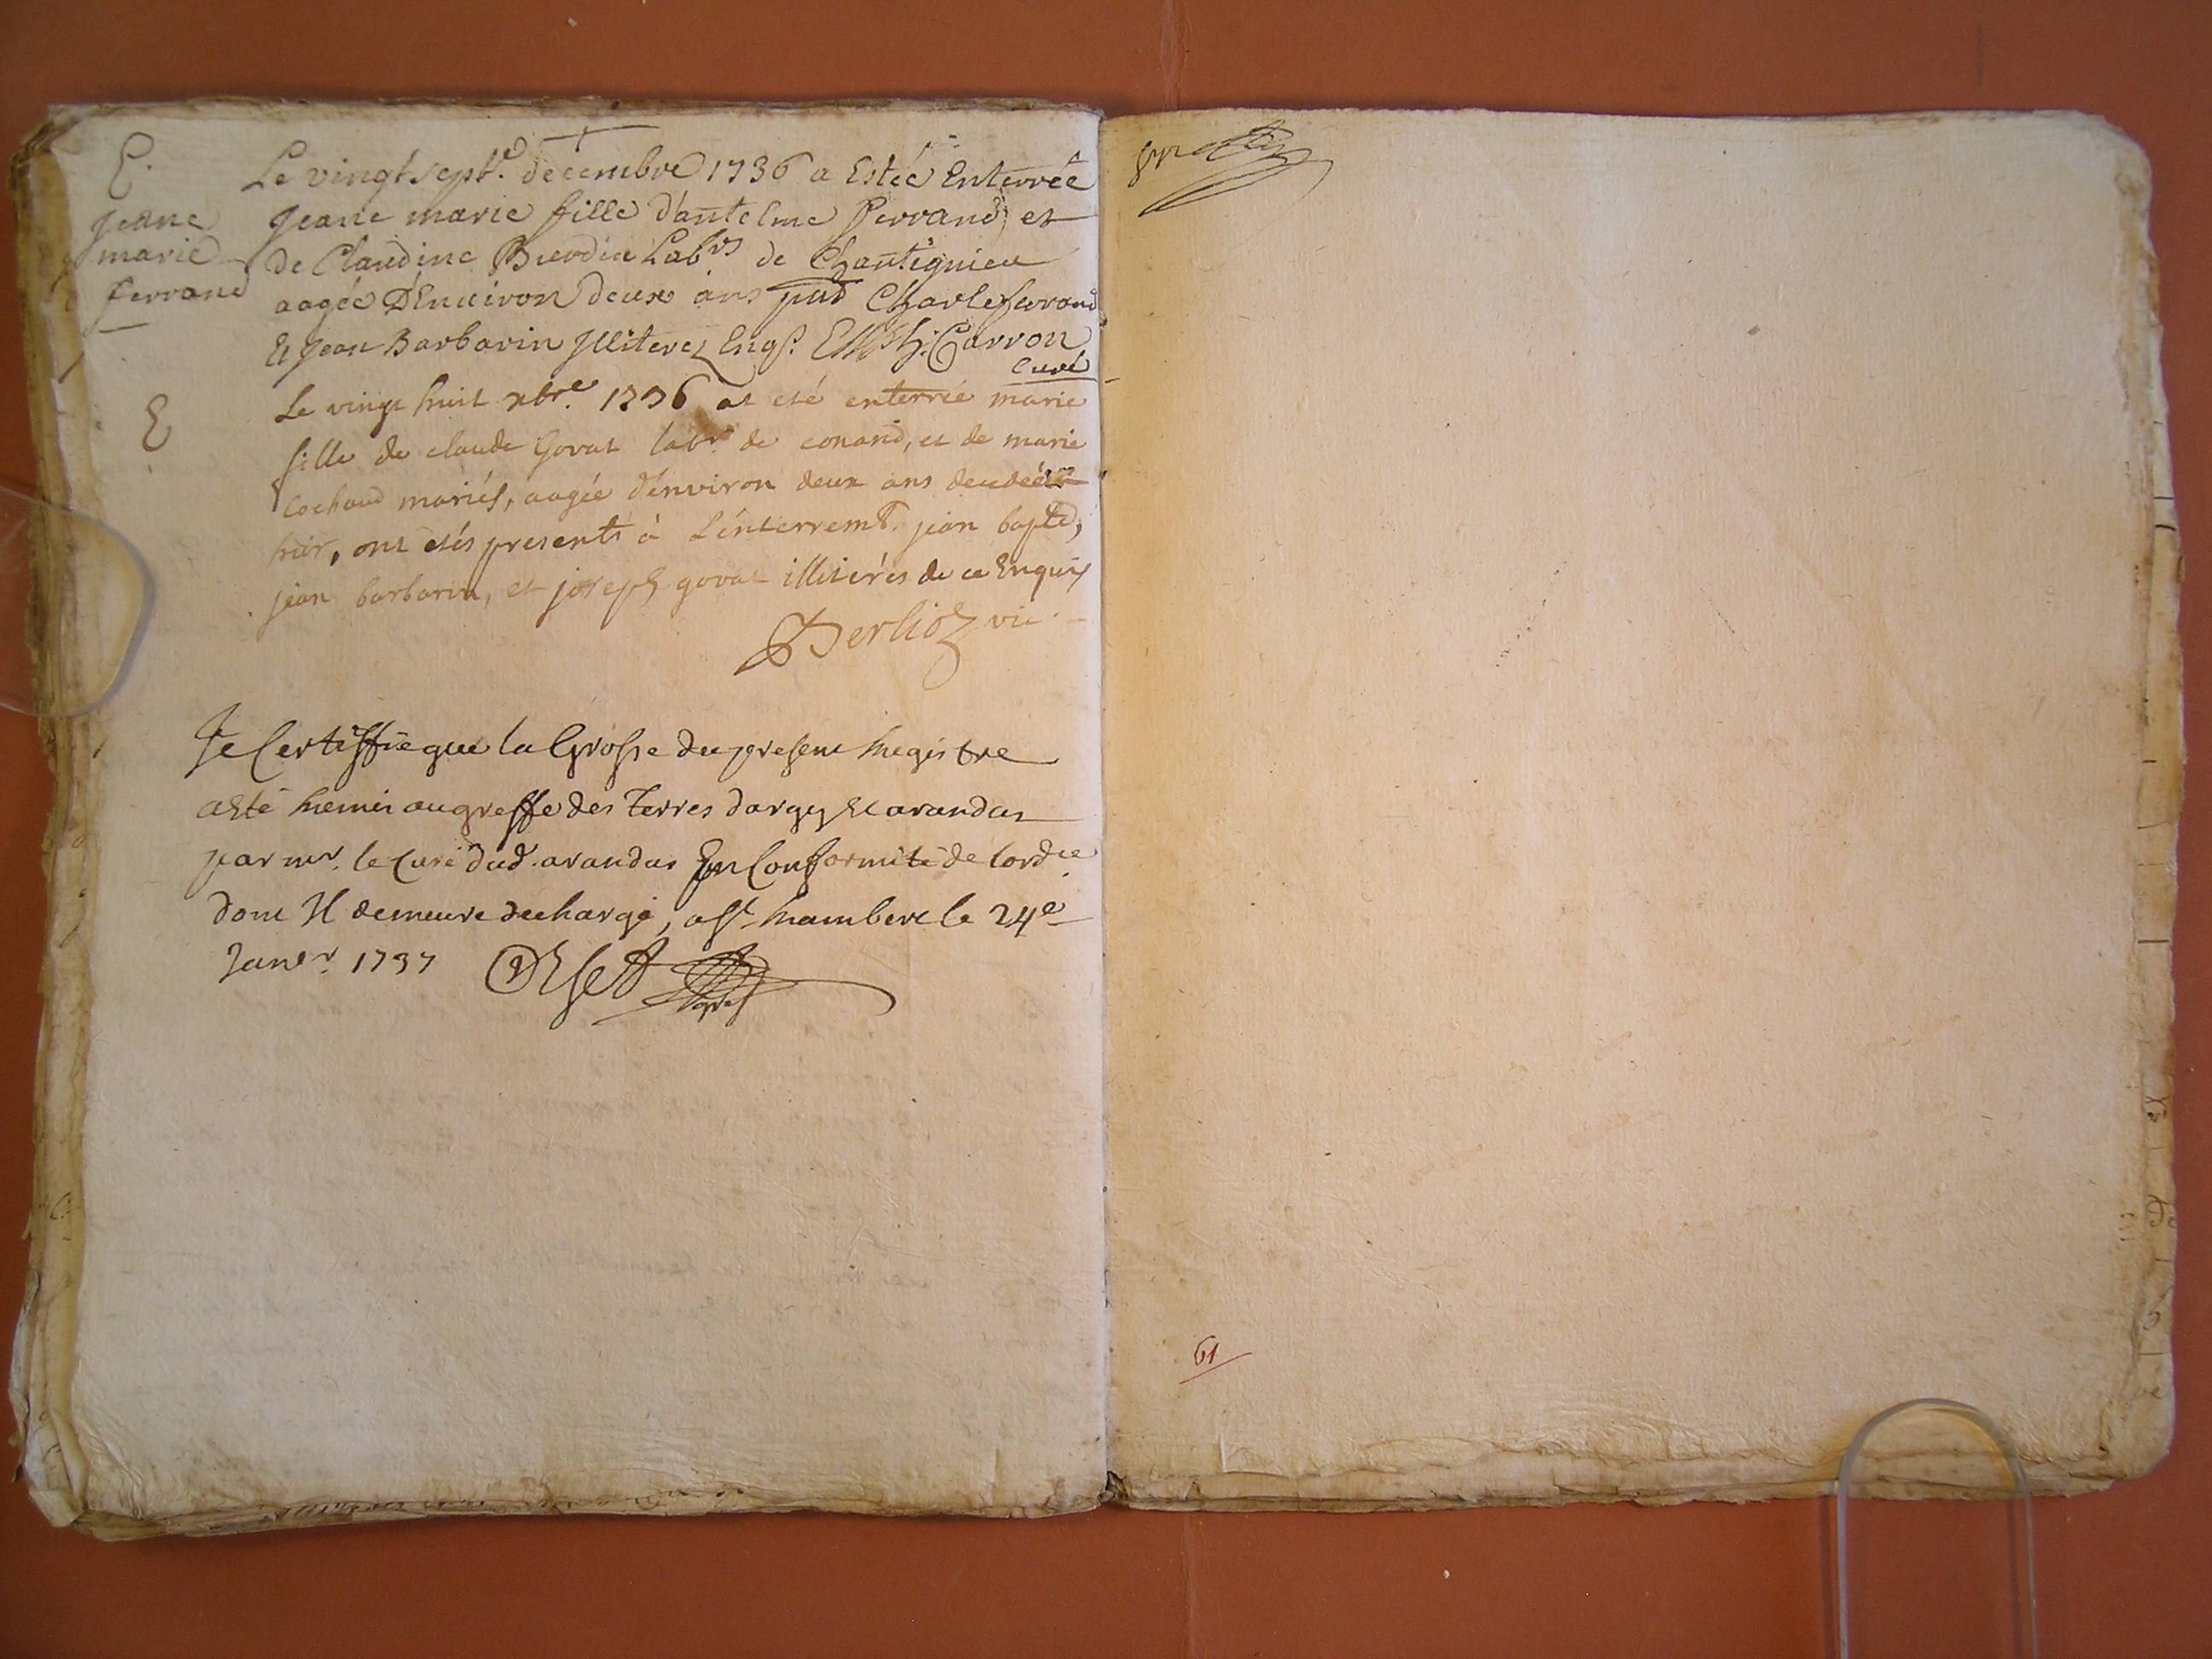 E.
Jeane
marie
ferrand
Le vingt sept.e decembre 1736 a Estée Enterrée
Jeane marie fille d'antelme ferrand et
de Claudine Labrs de Chantignieu
aagée D'Enuiron deux ans pnts Charle ferrand
Et Jean Barbarin Jlliterez Enqs. Carron
Curé
E
Le vingt huit xbre. 1736 at eté enterrée marie
fille de claude Govat labr. de conand, et de marie
Cochoud mariés, aagée d'environ deux ans decedée
hier, ont etés presents à L'enterremt. jean bapte,
jean barbarin, et joseph govat illiterés de ce Enquis
Berlioz vic.
Je Certiffie que la Grosse du present Registre
a Esté Remis au greffe des Terres dargy Et arandas
par mr. le Curé dud. arandas En Conformité de lordce.
dont Il demeure decharge, a St Rambert le 24e
Janvr. 1737
61